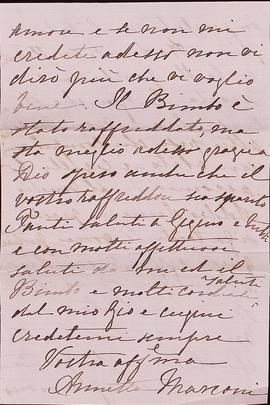 amore e se non mi
credete adesso non vi
dirò più che vi voglio
bene. Il Bimbo è
stato raffreddato, ma
sta meglio adesso grazia
Dio spero anche che il
vostro raffreddore sia sparito
Tanti saluti a Gigino e
e con molti affettuosi
saluti da me ed il
Bimbo e molti cordiali saluti
dal mio Zio e cugini
credetemi sempre
Vostra affma
Annetta Marconi